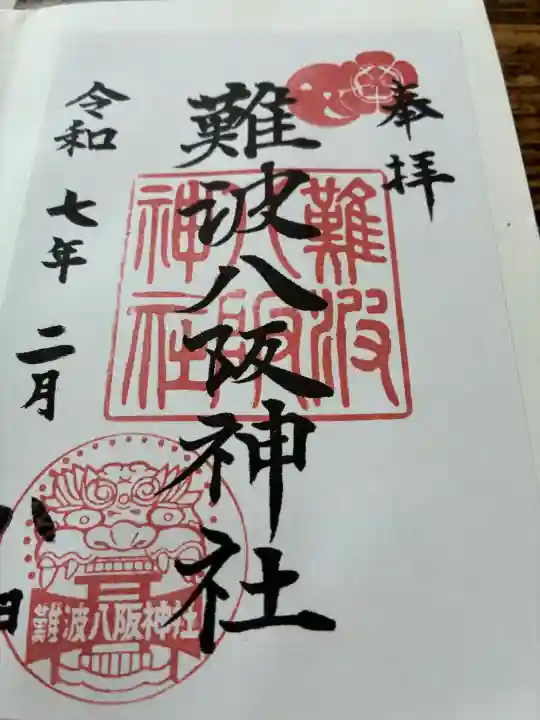 奉拝
難波八阪神社
難波
八阪
神社
令和七年二月八日
難波八阪神社